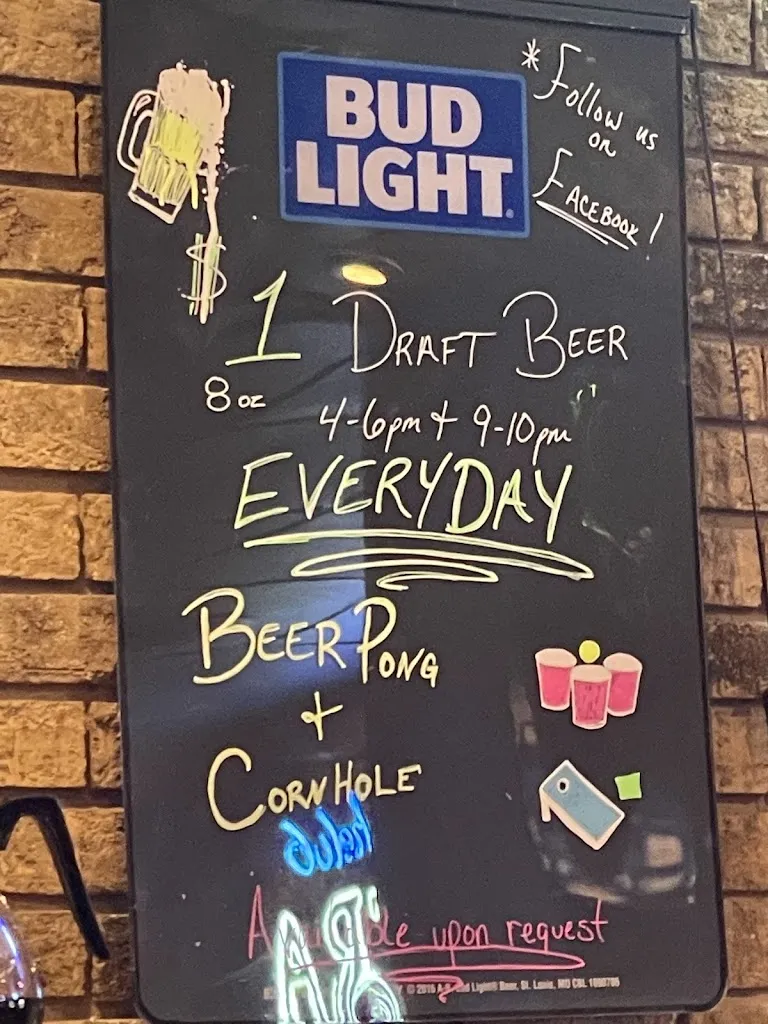 BUD
LIGHT
* Follow us
on
FACEBOOK!
$1 DRAFT BEER
8 oz
4-6pm + 9-10pm
EVERYDAY
BEER PONG
+
CORNHOLE
Available upon request
© 2016 Light® Beer, St. Louis, MO